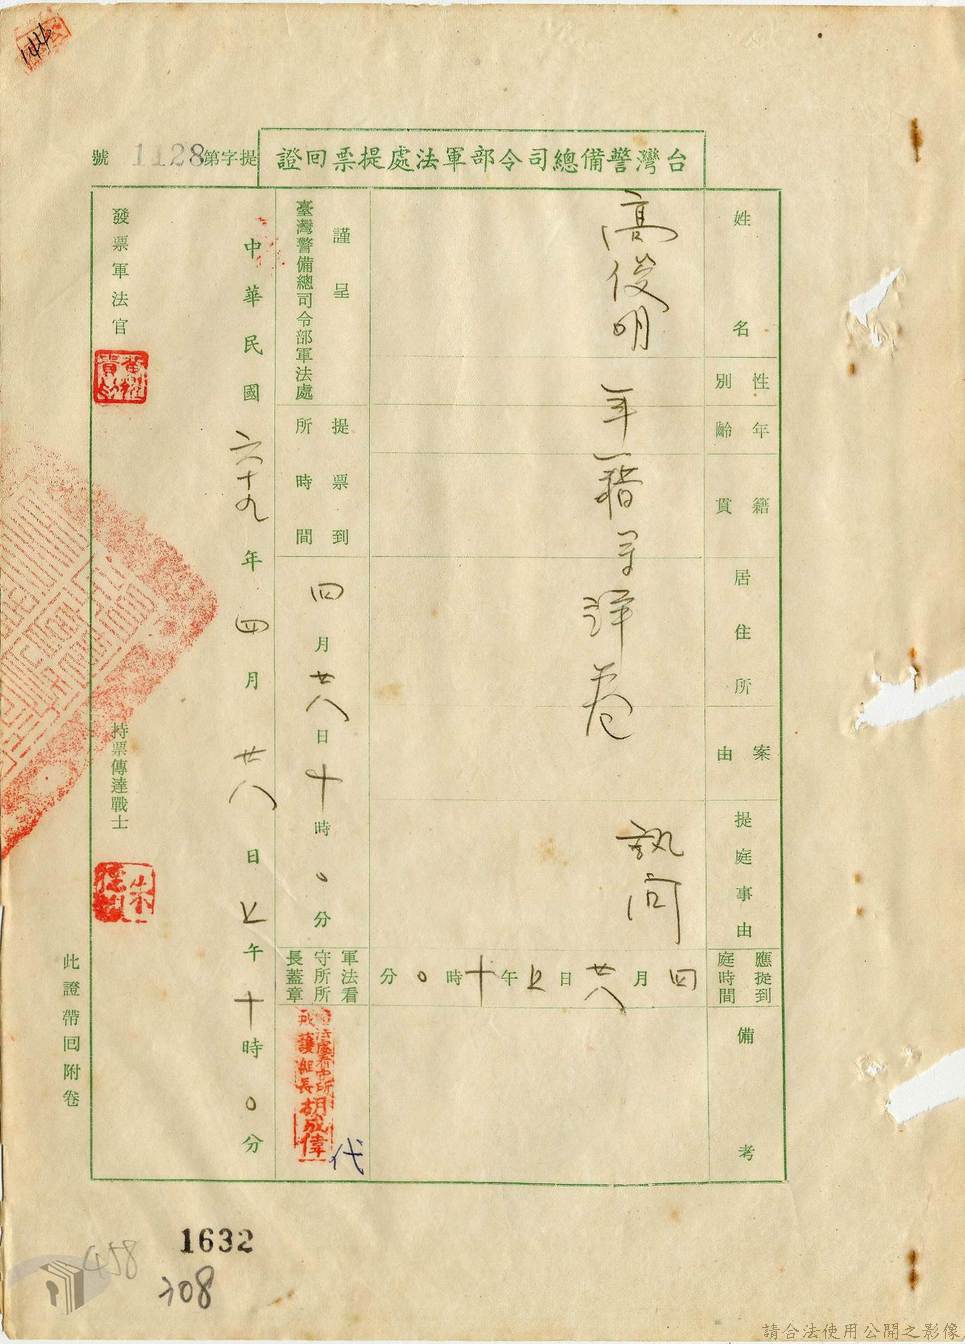 144
台灣警備總司令部軍法處提票回證
提字第1128號
姓名
高俊明
性別
年齡
籍貫
居住所
年籍等詳卷
案由
提庭事由
訊問
應提到庭時間
四月廿八日上午十時0分
備考
謹呈
臺灣警備總司令部軍法處
提票到所時間
四月廿八日十時0分
軍法看守所所長蓋章
戒護組長胡成偉
代
中華民國六十九年四月廿八日上午十時0分
發票軍法官
持票傳達戰士
此證帶回附卷
1632
458
308
請合法使用公開之影像